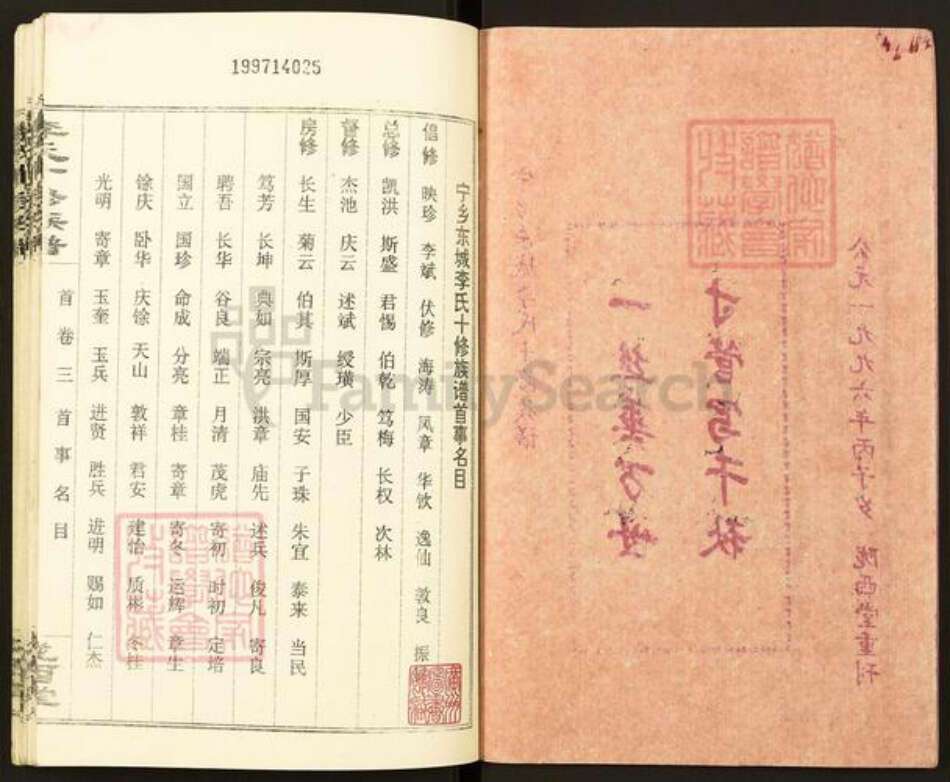 199714025
宁乡东城李氏十修族谱首事名目
倡修 映珍 李斌 伏修 海涛 凤章 华钦 逸仙 敦良 振
总修 凯洪 斯盛 君惕 伯乾 笃梅 长权 次林
督修 杰池 庆云 述斌 绶璜 少臣
房修 长生 菊云 伯其 斯厚 国安 子珠 朱宜 泰来 当民
笃芳 长坤 典如 宗亮 洪章 庙先 述兵 俊凡 寄良
聘吾 长华 谷良 端正 月清 茂虎 寄初 时初 定培
国立 国珍 命成 分亮 章桂 寄章 寄冬 运辉 章生
馀庆 卧华 庆馀 天山 敦祥 君安 建怡 质彬
光明 寄章 玉奎 玉兵 进贤 胜兵 进明 赐如 仁杰
首卷 三 首事名目
公元一九九六年丙子岁 陇西堂重刊
FamilySearch